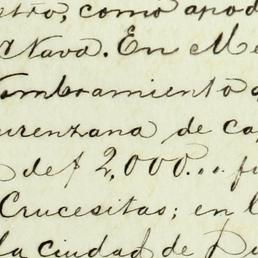 stro, como apod
Nava. En Me
ombramiento
urenzana de ca
de $ 2,000... fu
Crucesitas; en l
la ciudad de Pu